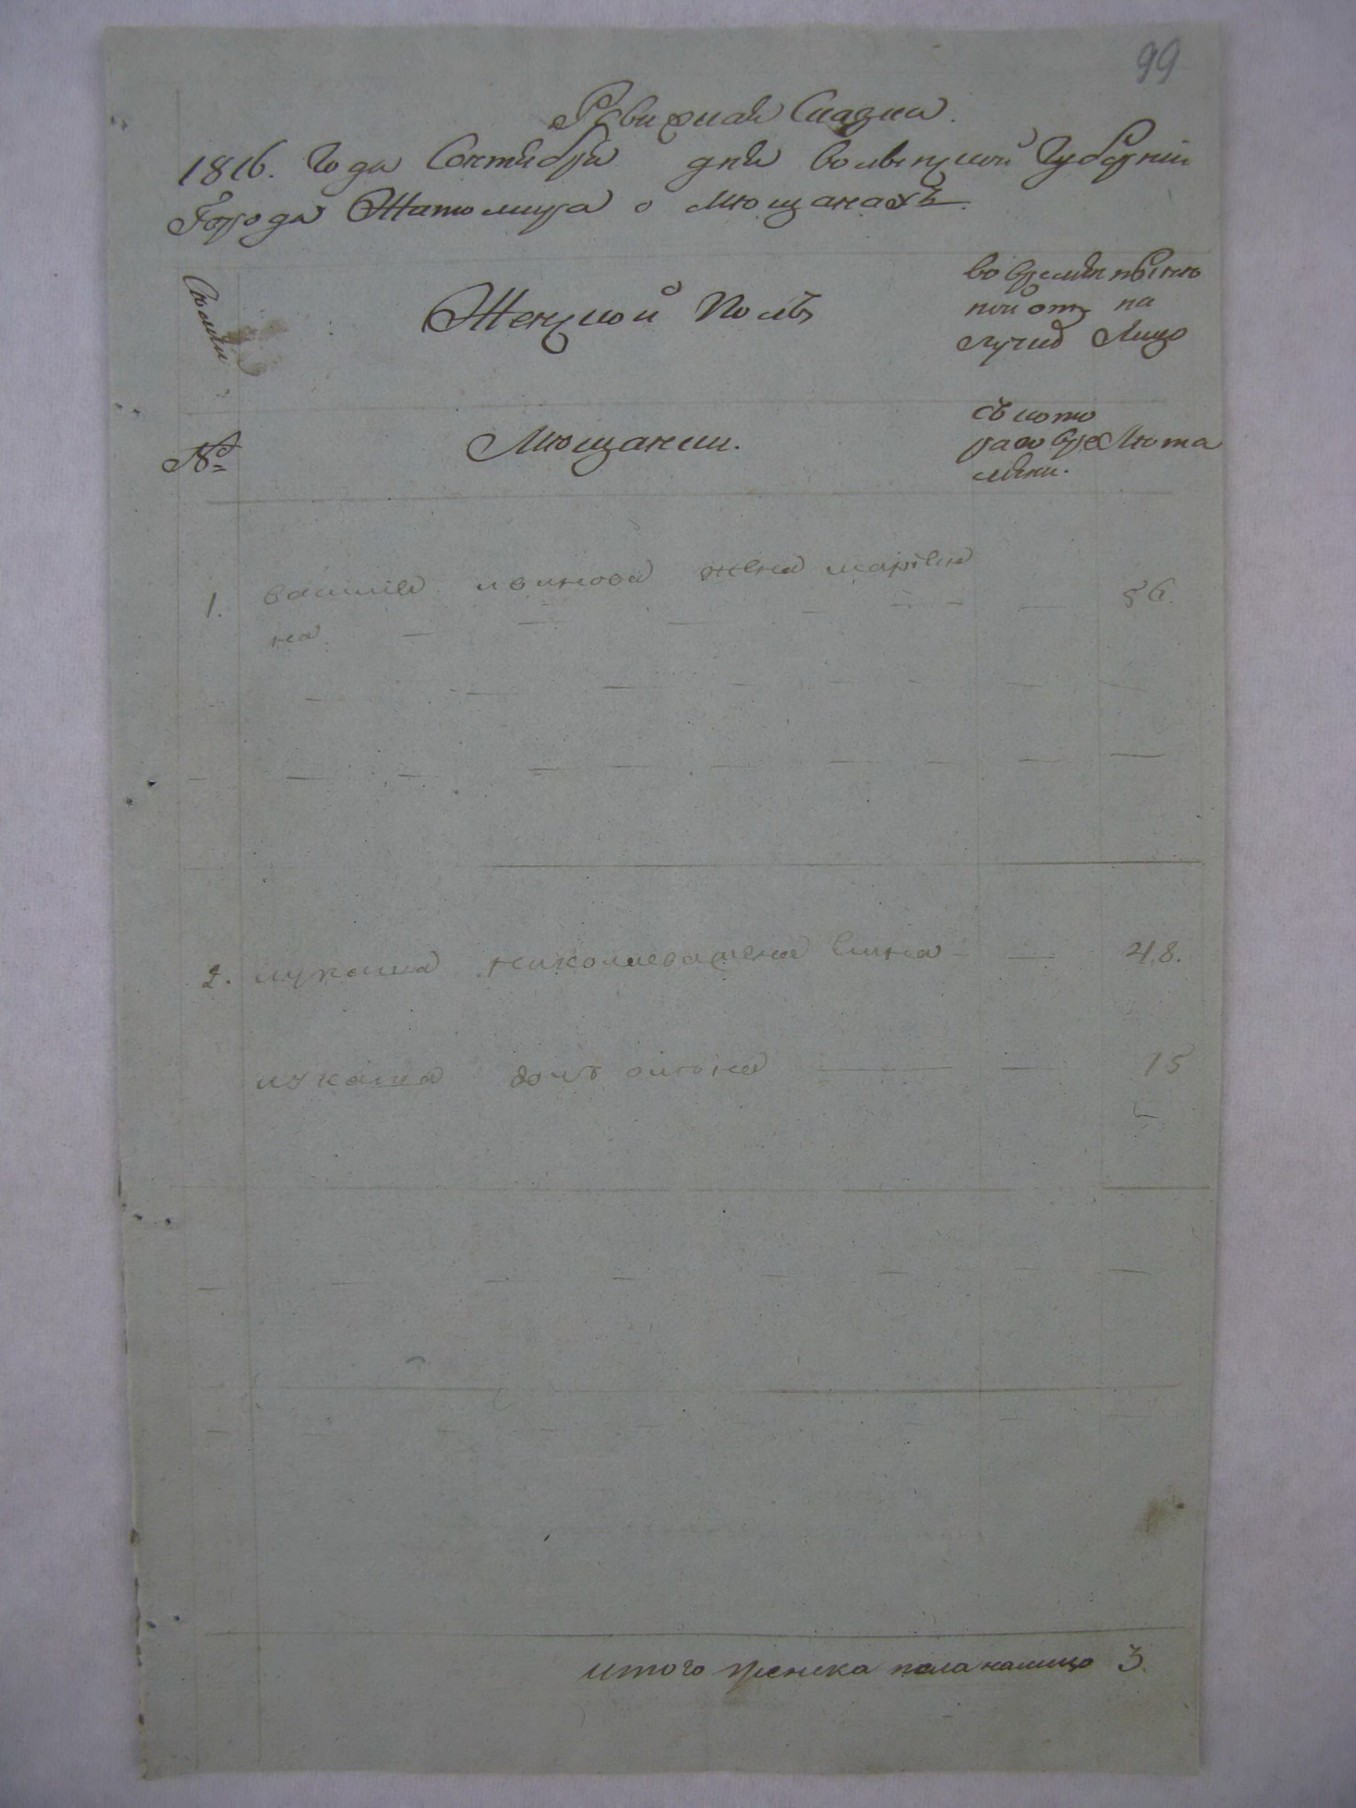 99
Ревизская Сказка.
1816. Года Сентября дня Волынской Губернии
Города Житомира о Мющанахъ
Семьи
Женской Полъ
во времян
ной от
лучке
ныне
на
Лицо
№
Мющански.
съ кото
раго вре
мяни.
Люта
1. василия жена марьян
на 56.
2. лукаша николаева жена 48.
лукаша дочь 15
итого женска пола налицо 3.